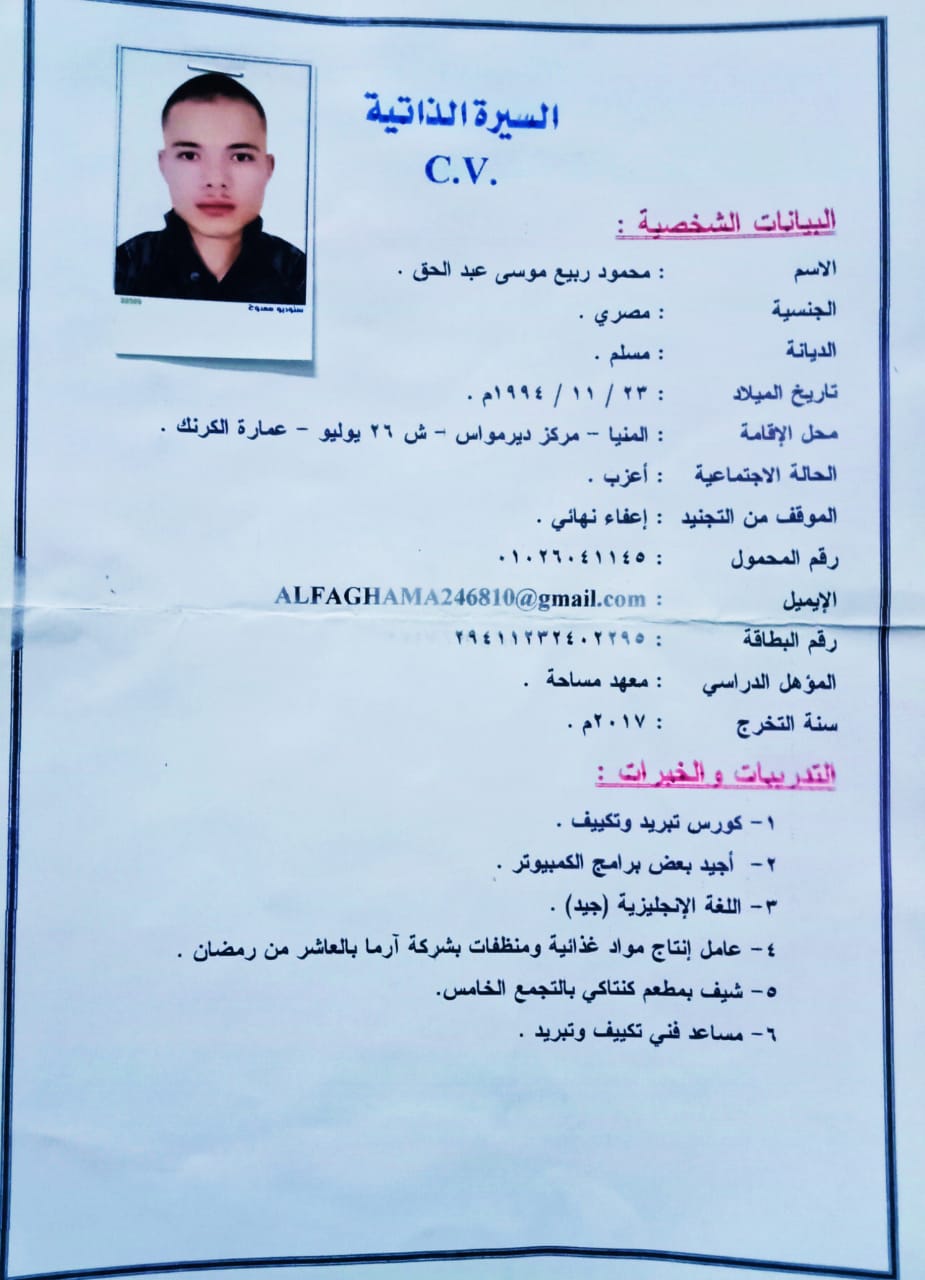 السيرة الذاتية
C.V.
البيانات الشخصية :
الاسم : محمود ربيع موسى عبد الحق .
الجنسية : مصري .
الديانة : مسلم .
تاريخ الميلاد : ٢٣ / ١١ / ١٩٩٤م .
محل الإقامة : المنيا – مركز ديرمواس – ش ٢٦ يوليو – عمارة الكرنك .
الحالة الاجتماعية : أعزب .
الموقف من التجنيد : إعفاء نهائي .
رقم المحمول : ٠١٠٢٦٠٤١١٤٥
الإيميل : ALFAGHAMA246810@gmail.com
رقم البطاقة : ٢٩٤١١٢٣٢٤٠٢٢٩٥
المؤهل الدراسي : معهد مساحة .
سنة التخرج : ٢٠١٧م .
التدريبات والخبرات :
١- كورس تبريد وتكييف .
٢- أجيد بعض برامج الكمبيوتر .
٣- اللغة الإنجليزية (جيد) .
٤- عامل إنتاج مواد غذائية ومنظفات بشركة آرما بالعاشر من رمضان .
٥- شيف بمطعم كنتاكي بالتجمع الخامس.
٦- مساعد فني تكييف وتبريد .
ستوديو ممدوح